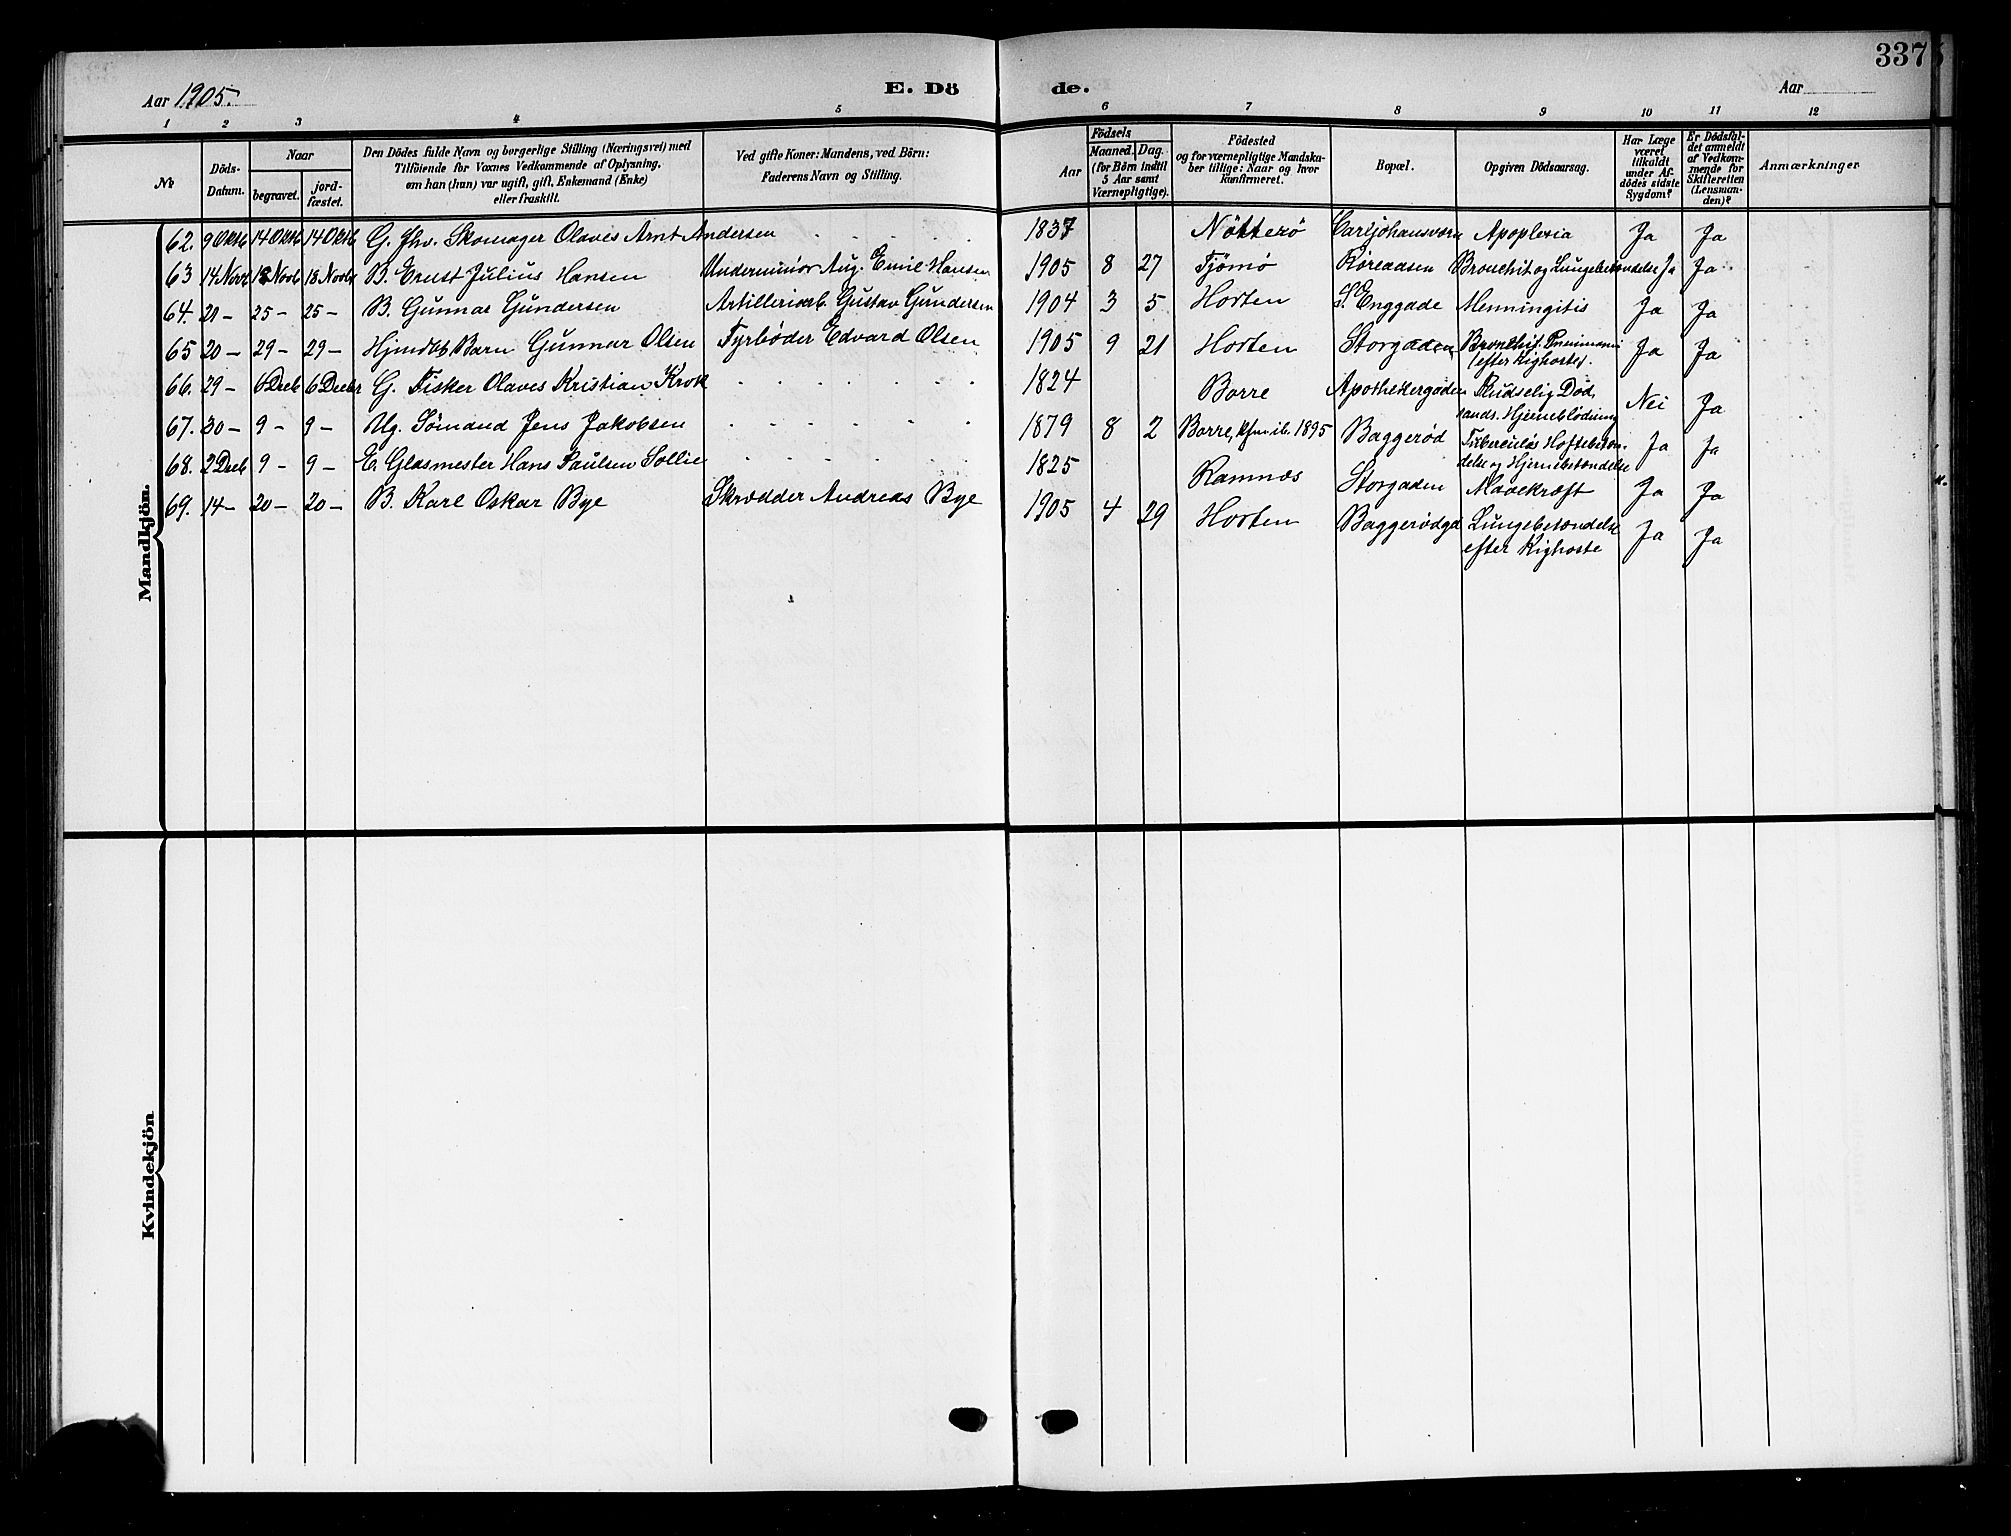 337
Aar 1905.
E. Dö
de.
Aar
1 2 3 4 5 6 7 8 9 10 11 12
№
Döds-
Datum.
Naar
begravet.
jord-
fæstet.
Den Dödes fulde Navn og borgerlige Stilling (Næringsvei) med
Tilföiende for Voxnes Vedkommende af Oplysning,
om han (hun) var ugift, gift, Enkemand (Enke)
eller fraskilt.
Ved gifte Koner: Mandens, ved Börn:
Faderens Navn og Stilling.
Födsels
Aar
Maaned. Dag.
(for Börn indtil
5 Aar samt
Værnepligtige).
Födested
og for værnepligtige Mandska-
ber tillige: Naar og hvor
konfirmeret.
Bopæl.
Opgiven Dödsaarsag.
Har Læge
været
tilkaldt
under Af-
dödes sidste
Sygdom?
Er Dödsfal-
det anmeldt
af Vedkom-
mende for
Skifteretten
(Lensman-
den)?
Anmærkninger
Mandkjön.
62. 9 Oktb 14 Oktb 14 Oktb G. Fhv. Skomager Olavis Arnt Andersen 1837 Nötterö Carljohansværn Apoplexia Ja Ja
63 14 Novb 18 Novb 18 Novbr B. Ernst Julius Hansen Underminör Aug. Emil Hansen 1905 8 27 Tjömö Röreaasen Bronchit og Lungebetændelse Ja Ja
64. 21 - 25 - 25 - B. Gunnar Gundersen Artilleriarb. Gustav Gundersen 1904 3 5 Horten S. Enggade Menningitis Ja Ja
65 20 - 29 - 29 - Hjemdöb Barn Gunnar Olsen Fyrböder Edvard Olsen 1905 9 21 Horten Storgaden Bronchit. Pneumoni
(efter Kighoste). Ja Ja
66. 29 - 6 Decb 6 Decbr G. Fisker Olaves Kristian Krok 1824 Borre Apothekergaden Pludselig Död,
sands. Hjerneblödning Nei Ja
67. 30 - 9 - 9 - Ug. Sömand Jens Jakobsen 1879 8 2 Borre, kfm ib. 1895 Baggeröd Tuberculös Hoftebetæn-
delse og Hjernebetændelse Ja Ja
68. 2 Decb 9 - 9 - E. Glasmester Hans Paulsen Sollie 1825 Ramnæs Storgaden Mavekræft Ja Ja
69. 14 - 20 - 20 - B. Karl Oskar Bye Skrædder Andreas Bye 1905 4 29 Horten Baggerödgd Lungebetændelse
efter Kighoste Ja Ja
Kvindekjön